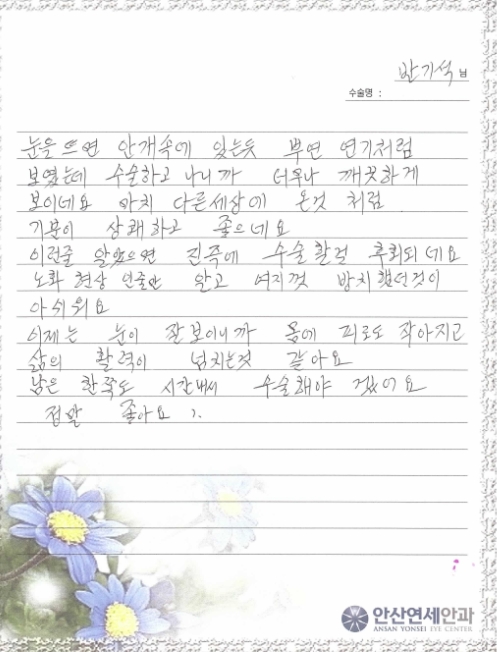 반기석 님
수술명 :
눈을 뜨면 안개속에 있는듯 뿌연 연기처럼
보였는데 수술하고 나니까 너무나 깨끗하게
보이네요 마치 다른세상에 온것 처럼
기분이 상쾌하고 좋으네요
이런줄 알았으면 진즉에 수술할걸 후회되네요
노화 현상 인줄만 알고 여지껏 방치했던것이
아쉬워요
이제는 눈이 잘보이니까 몸에 피로도 작아지고
삶의 활력이 넘치는것 같아요
남은 한쪽도 시간내서 수술해야 겠어요
정말 좋아요
안산연세안과
ANSAN YONSEI EYE CENTER